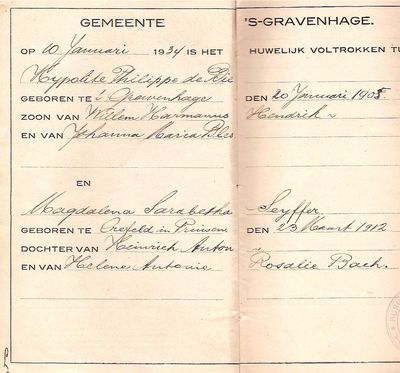 GEMEENTE 'S-GRAVENHAGE.
OP 10 Januari 1934 IS HET HUWELIJK VOLTROKKEN TU
Hypolite Philippe de
GEBOREN TE 's Gravenhage DEN 20 Januari 1905
ZOON VAN Willem Harmanus Hendrik
EN VAN Johanna Maria
EN
Magdalena Sarabetha Seyffer
GEBOREN TE Crefeld in Pruisen DEN 23 Maart 1912
DOCHTER VAN Heinrich Anton
EN VAN Helene Antonie Rosalie Bach.